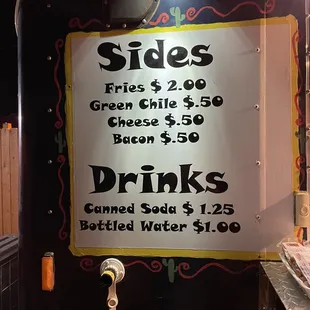 Sides
Fries $ 2.00
Green Chile $.50
Cheese $.50
Bacon $.50
Drinks
Canned Soda $ 1.25
Bottled Water $1.00